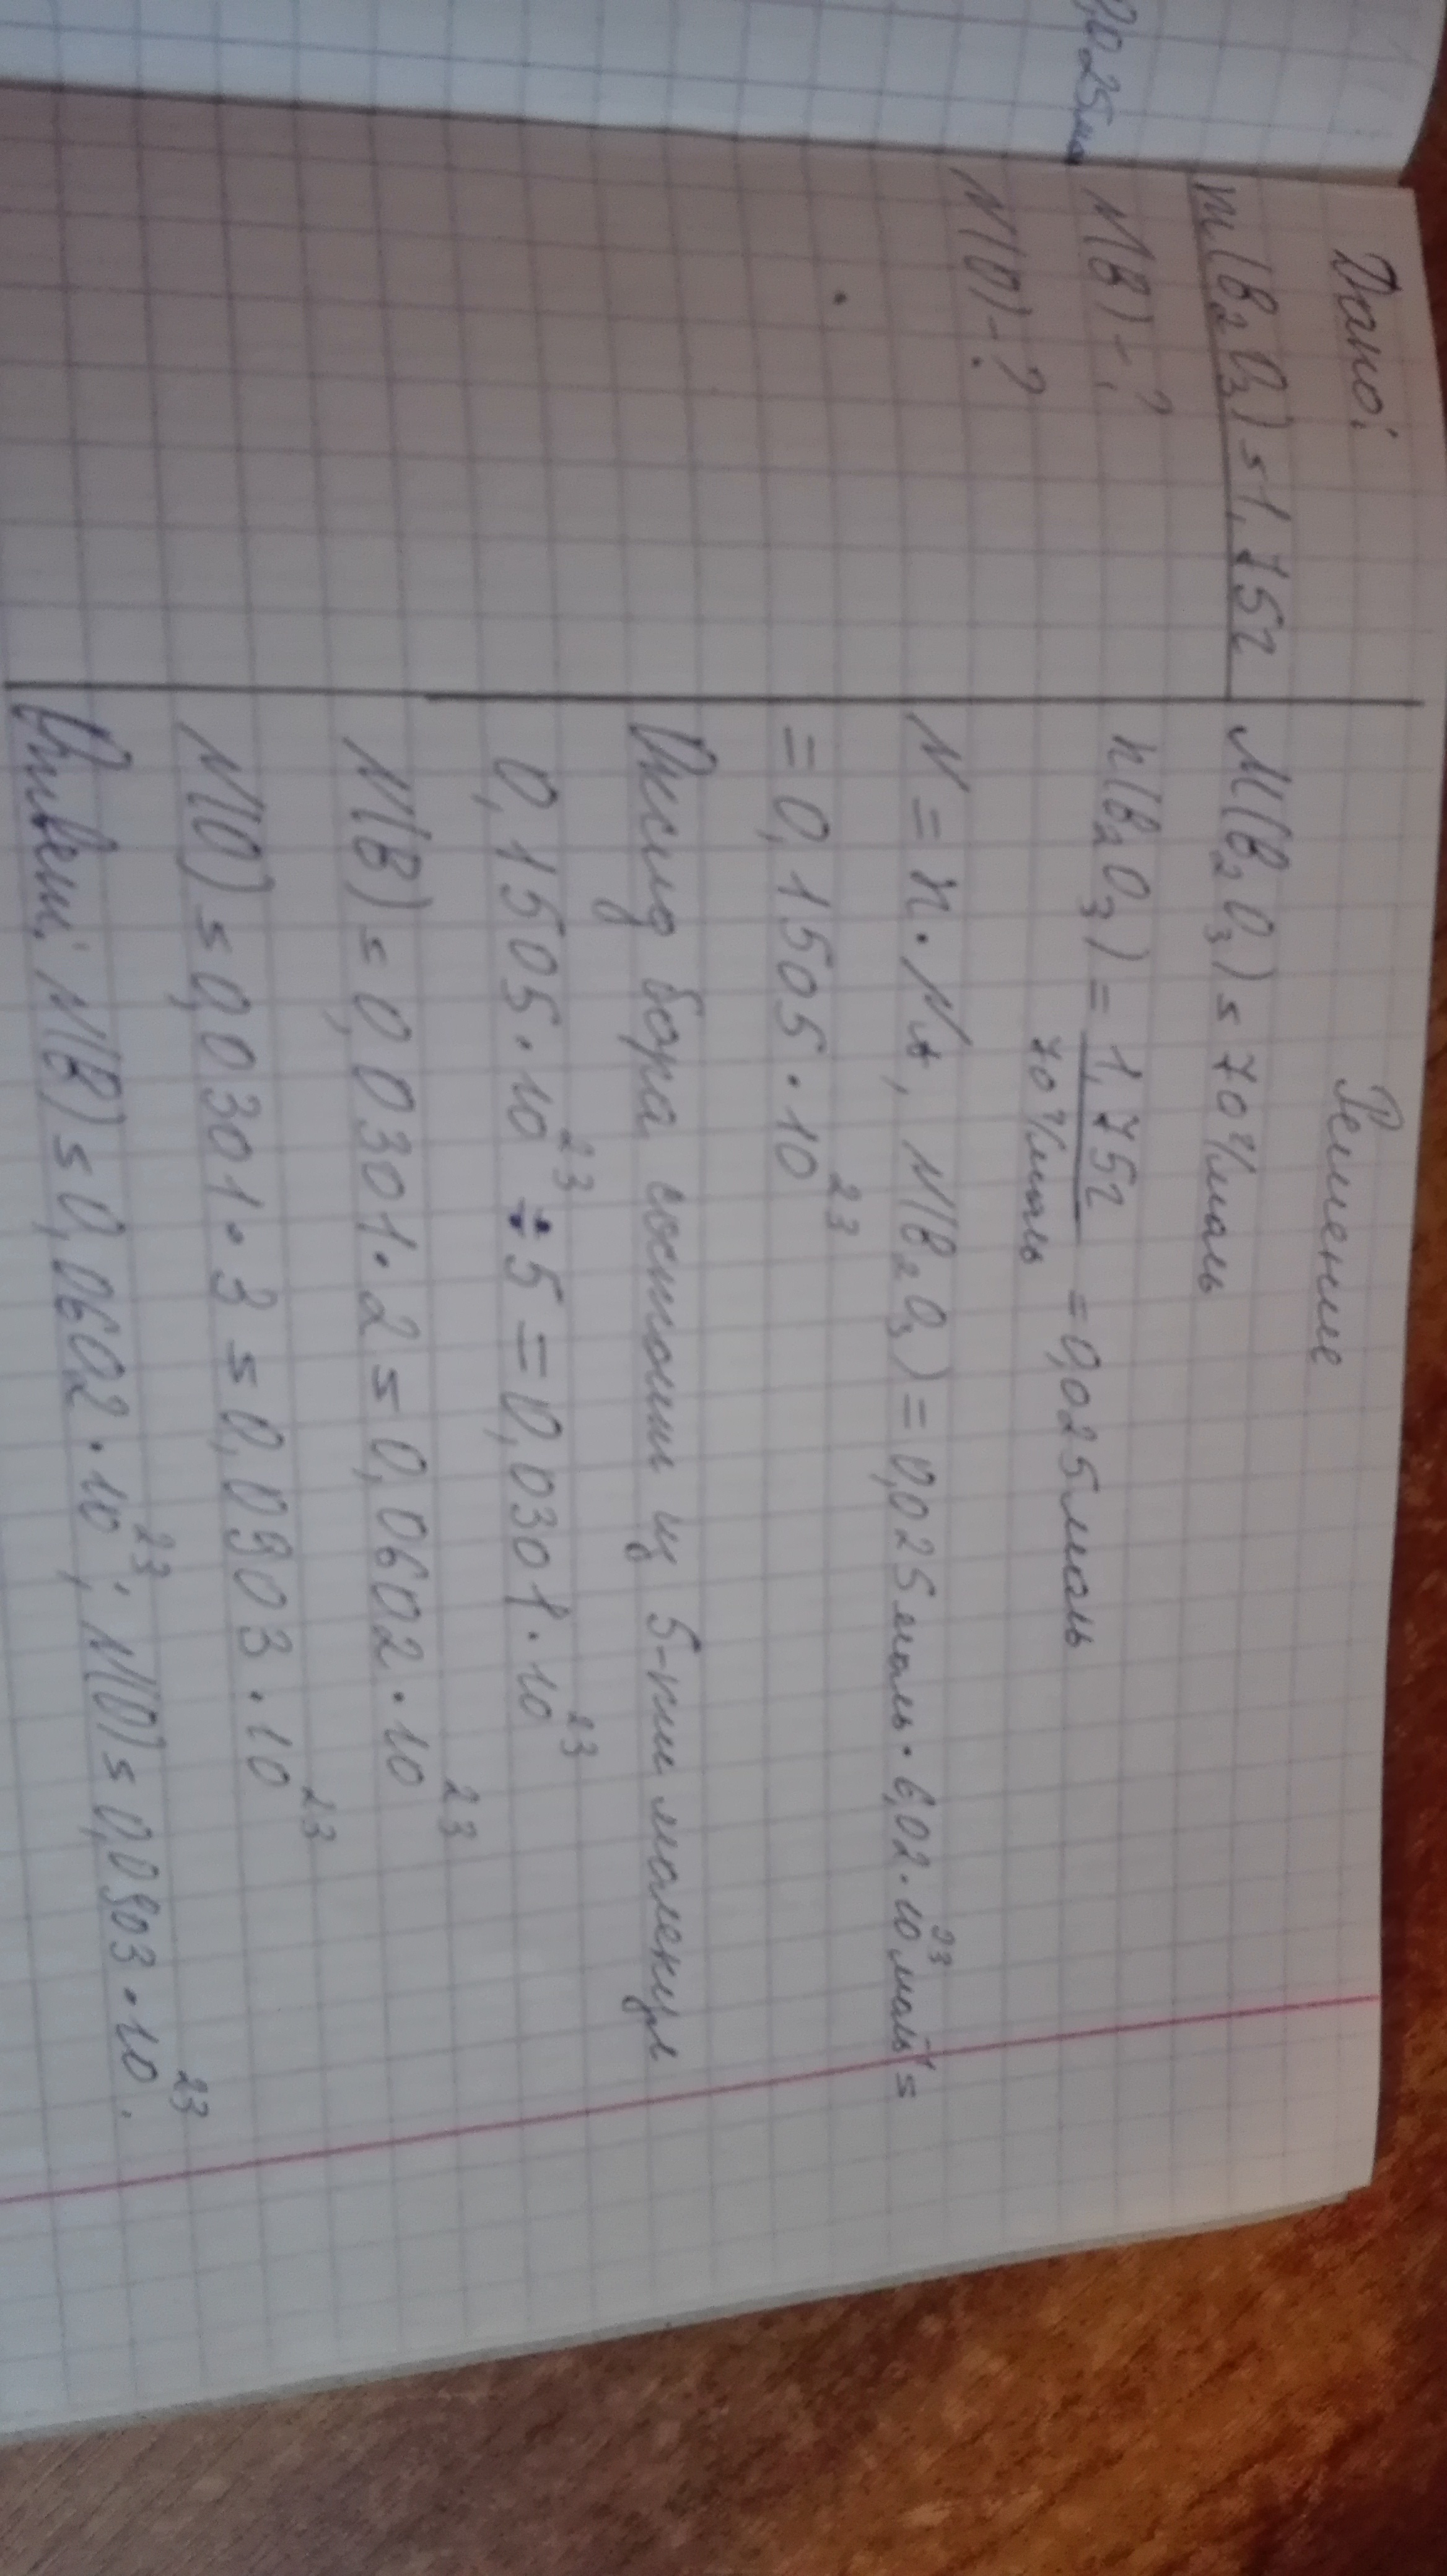 0,025мол
Дано:
m(B₂O₃)=1,75г
N(B)-?
N(O)-?
Решение
M(B₂O₃)=70г/моль
n(B₂O₃)=1,75г/70г/моль=0,025моль
N=n·Nₐ, N(B₂O₃)=0,025моль·6,02·10²³моль⁻¹=
=0,1505·10²³
Оксид бора состоит из 5-ти молекул
0,1505·10²³÷5=0,0301·10²³
N(B)=0,0301·2=0,0602·10²³
N(O)=0,0301·3=0,0903·10²³
Ответ: N(B)=0,0602·10²³; N(O)=0,0903·10²³.